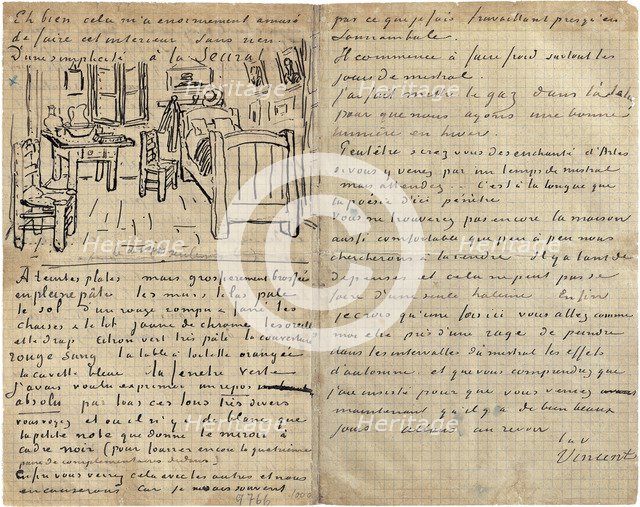 Eh bien cela m'a enormement amusé
de faire cet interieur sans rien.
D'une simplicité à la Seurat
A teintes plates mais grossierement brossées
en pleine pâte les murs lilas pale
le sol d'un rouge rompu & fané les
chaises & le lit jaune de chrome les oreillers
et le drap citron vert très pâle la couverture
rouge sang la table à toilette orangée
la cuvette bleue la fenetre verte
J'avais voulu exprimer un repos
absolu par tous ces tons très divers
vous voyez et où il n'y a de blanc que
la petite note que donne le miroir à
cadre noir (pour fourrer encore la quatrième
paire de complémentaires dedans)
Enfin vous verrez cela avec les autres et nous
en causerons car je ne sais souvent
9766
pas ce que je fais travaillant presqu'en
somnambule.
Il commence à faire froid surtout les
jours de mistral.
J'ai fait mettre le gaz dans l'
pour que nous ayons une bonne
lumière en hiver.
Peutêtre serez vous desenchanté d'Arles
si vous y venez par un temps de mistral
mais attendez... C'est à la longue que
la poésie d'ici pénètre
Vous ne trouverez pas encore la maison
aussi comfortable que peu à peu nous
chercherons à la rendre il y a tant de
depenses et cela ne peut pas se
faire d'une seule haleine Enfin
je crois qu'une fois ici vous allez comme
moi être pris d'une rage de peindre
dans les intervalles du mistral les effets
d'automne. et que vous comprendrez que
j'ai insisté pour que vous venez
maintenant qu'il y a de bien beaux
jours allons au revoir
t. à v
Vincent
Heritage Images
Heritage Images
Heritage Images
Heritage Images
Heritage Images
©